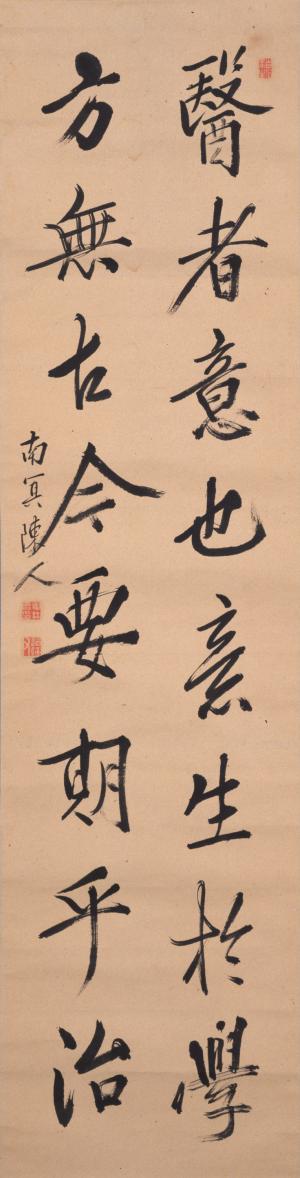 醫者意也意生於學
方無古今要期乎治
南冥陳人